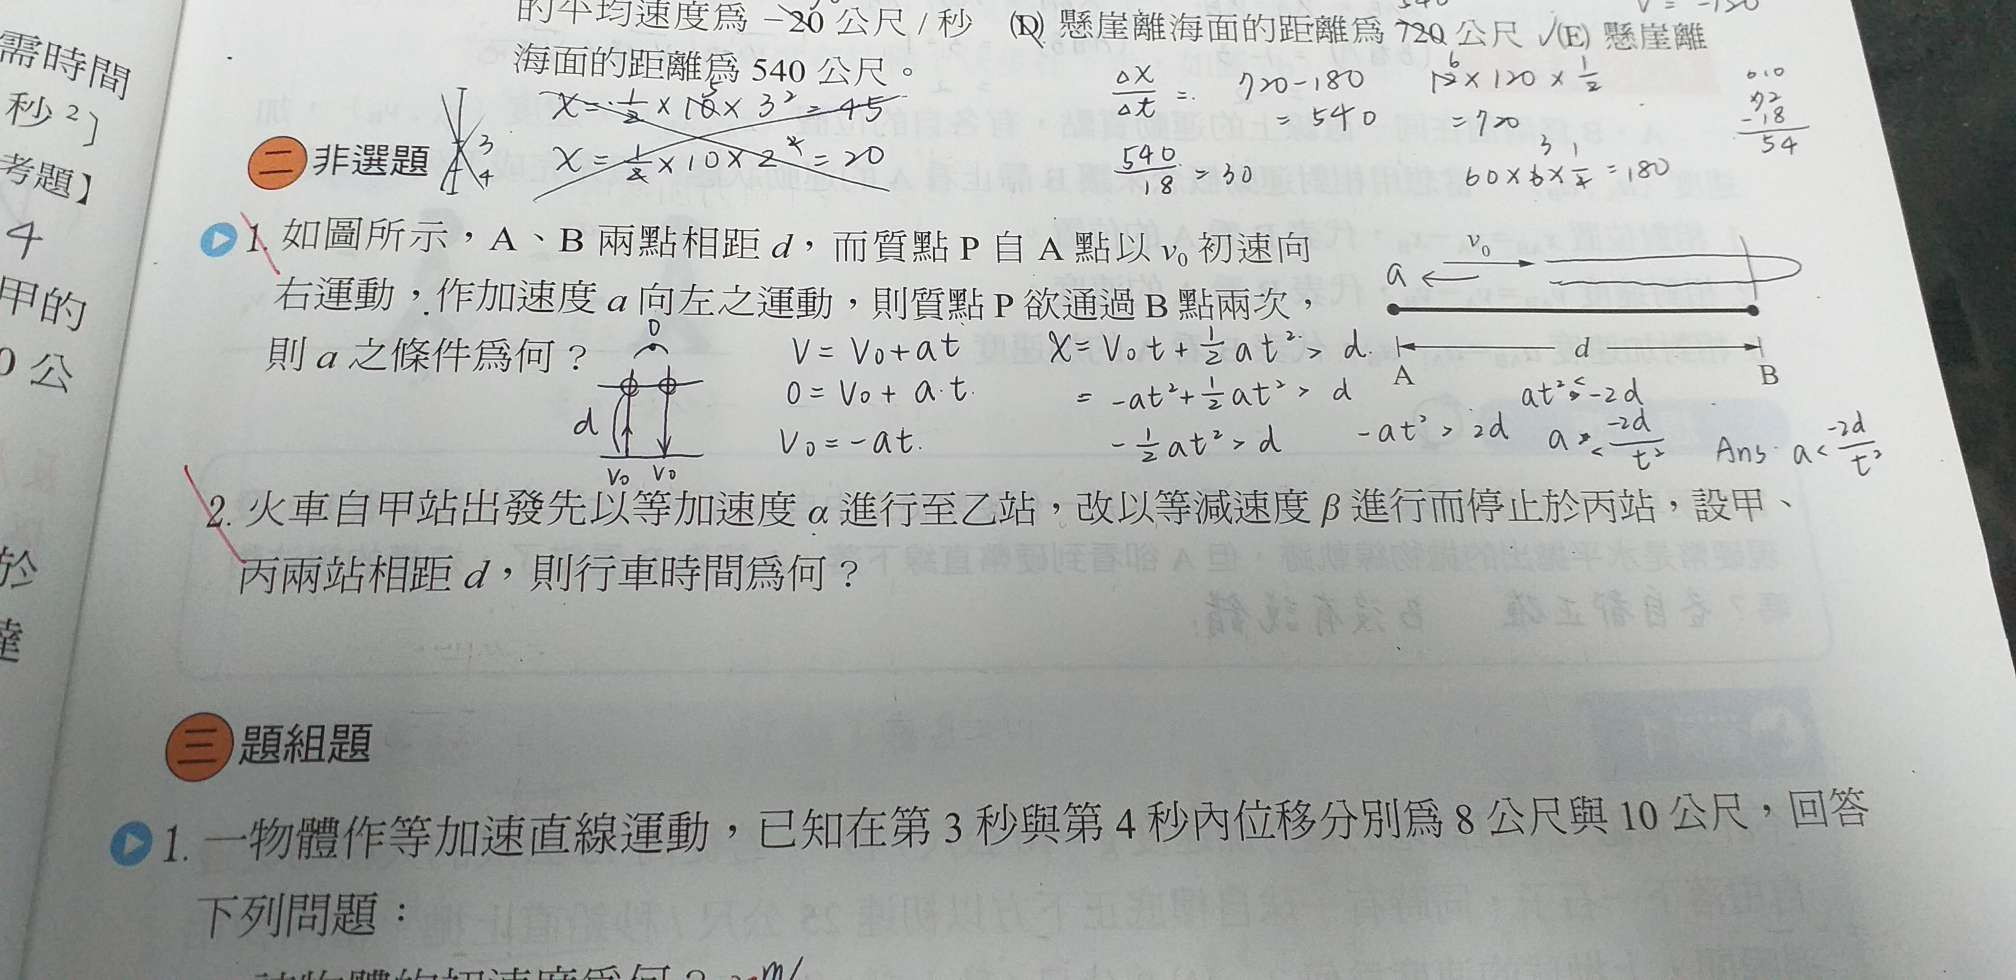 的平均速度為 −20 公尺 / 秒 (D) 懸崖離海面的距離為 720 公尺 √(E) 懸崖離
海面的距離為 540 公尺。
x = 1/2 × 10 × 3² = 45
x = 1/2 × 10 × 2² = 20
Δx/Δt = 720-180
= 540
540/18 = 30
12 × 120 × 1/2
= 720
60 × 6 × 1/2 = 180
72
-18
54
需時間
秒²〕
考題】
4
甲的
0 公
於
達
二 非選題
3
4
1. 如圖所示，A、B 兩點相距 d，而質點 P 自 A 點以 v₀ 初速向
右運動，作加速度 a 向左之運動，則質點 P 欲通過 B 點兩次，
則 a 之條件為何？
a
v₀
d
A
B
0
d
V₀ V₀
V = V₀ + at
0 = V₀ + a·t
V₀ = -at.
X = V₀t + 1/2 at² > d.
= -at² + 1/2 at² > d
-1/2 at² > d
-at² > 2d
at² < -2d
a < -2d/t²
Ans: a < -2d/t²
2. 火車自甲站出發先以等加速度 α 進行至乙站，改以等減速度 β 進行而停止於丙站，設甲、
丙兩站相距 d，則行車時間為何？
三 題組題
1. 一物體作等加速直線運動，已知在第 3 秒與第 4 秒內位移分別為 8 公尺與 10 公尺，回答
下列問題：